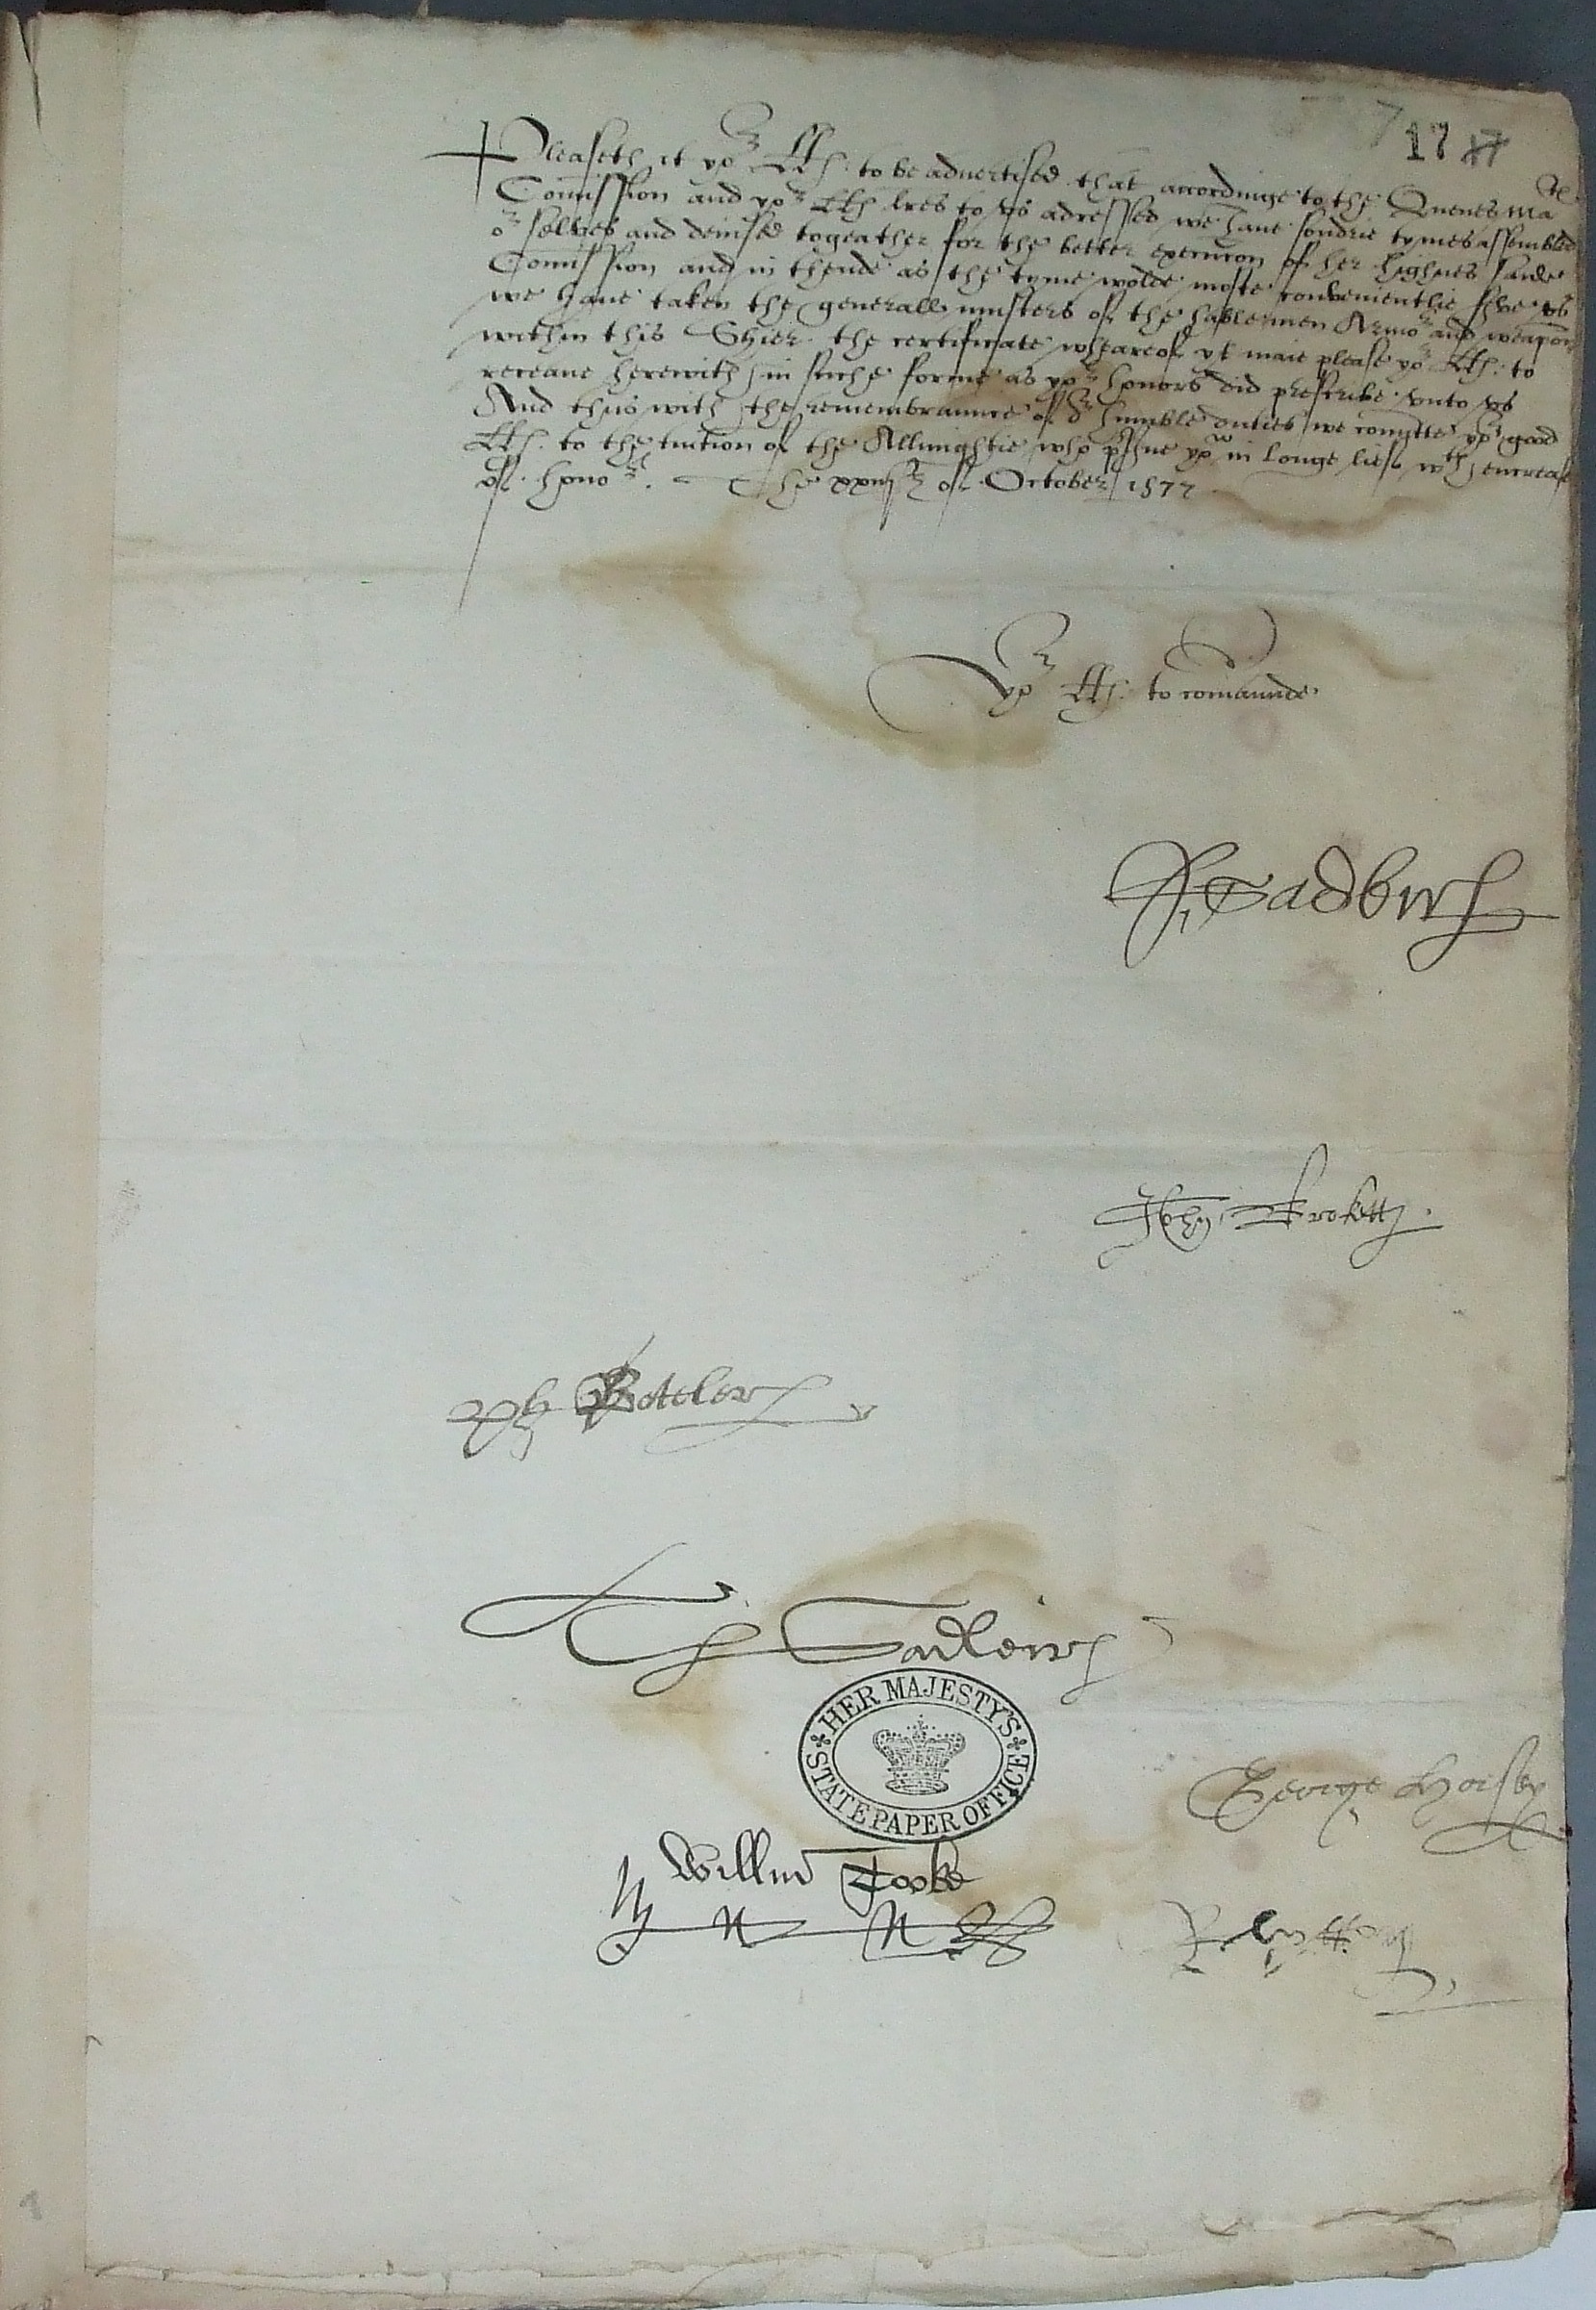 17
Pleaseth it yor LLs. to be advertised that accordinge to the Quenes Ma
Comission and yor LLs lres to vs adressed we haue sondrie tymes assembled
or selves and devised togeather for the better execucon of her highnes saide
Comission and in thende as the tyme wolde moste convenientlie serve vs
we haue taken the generall musters of the hable men Armor and weapon
within this Shier the certificate wheareof yt maie please yor LLs: to
receaue herewith in suche forme as yor honors did prescribe vnto vs
And thus with the remembraunce of or humble duties we comytte yor good
LLs. to the tuition of the Allmightie who pserue yow in longe lief wth encrease
of honor. The of October 1577
yor LLs. to comaunde
H Sadleir
John Brokett
Ph Boteler
Th Sadleir
HER MAJESTY'S
STATE PAPER OFFICE
George Horsey
Willm Tooke
R Lytton